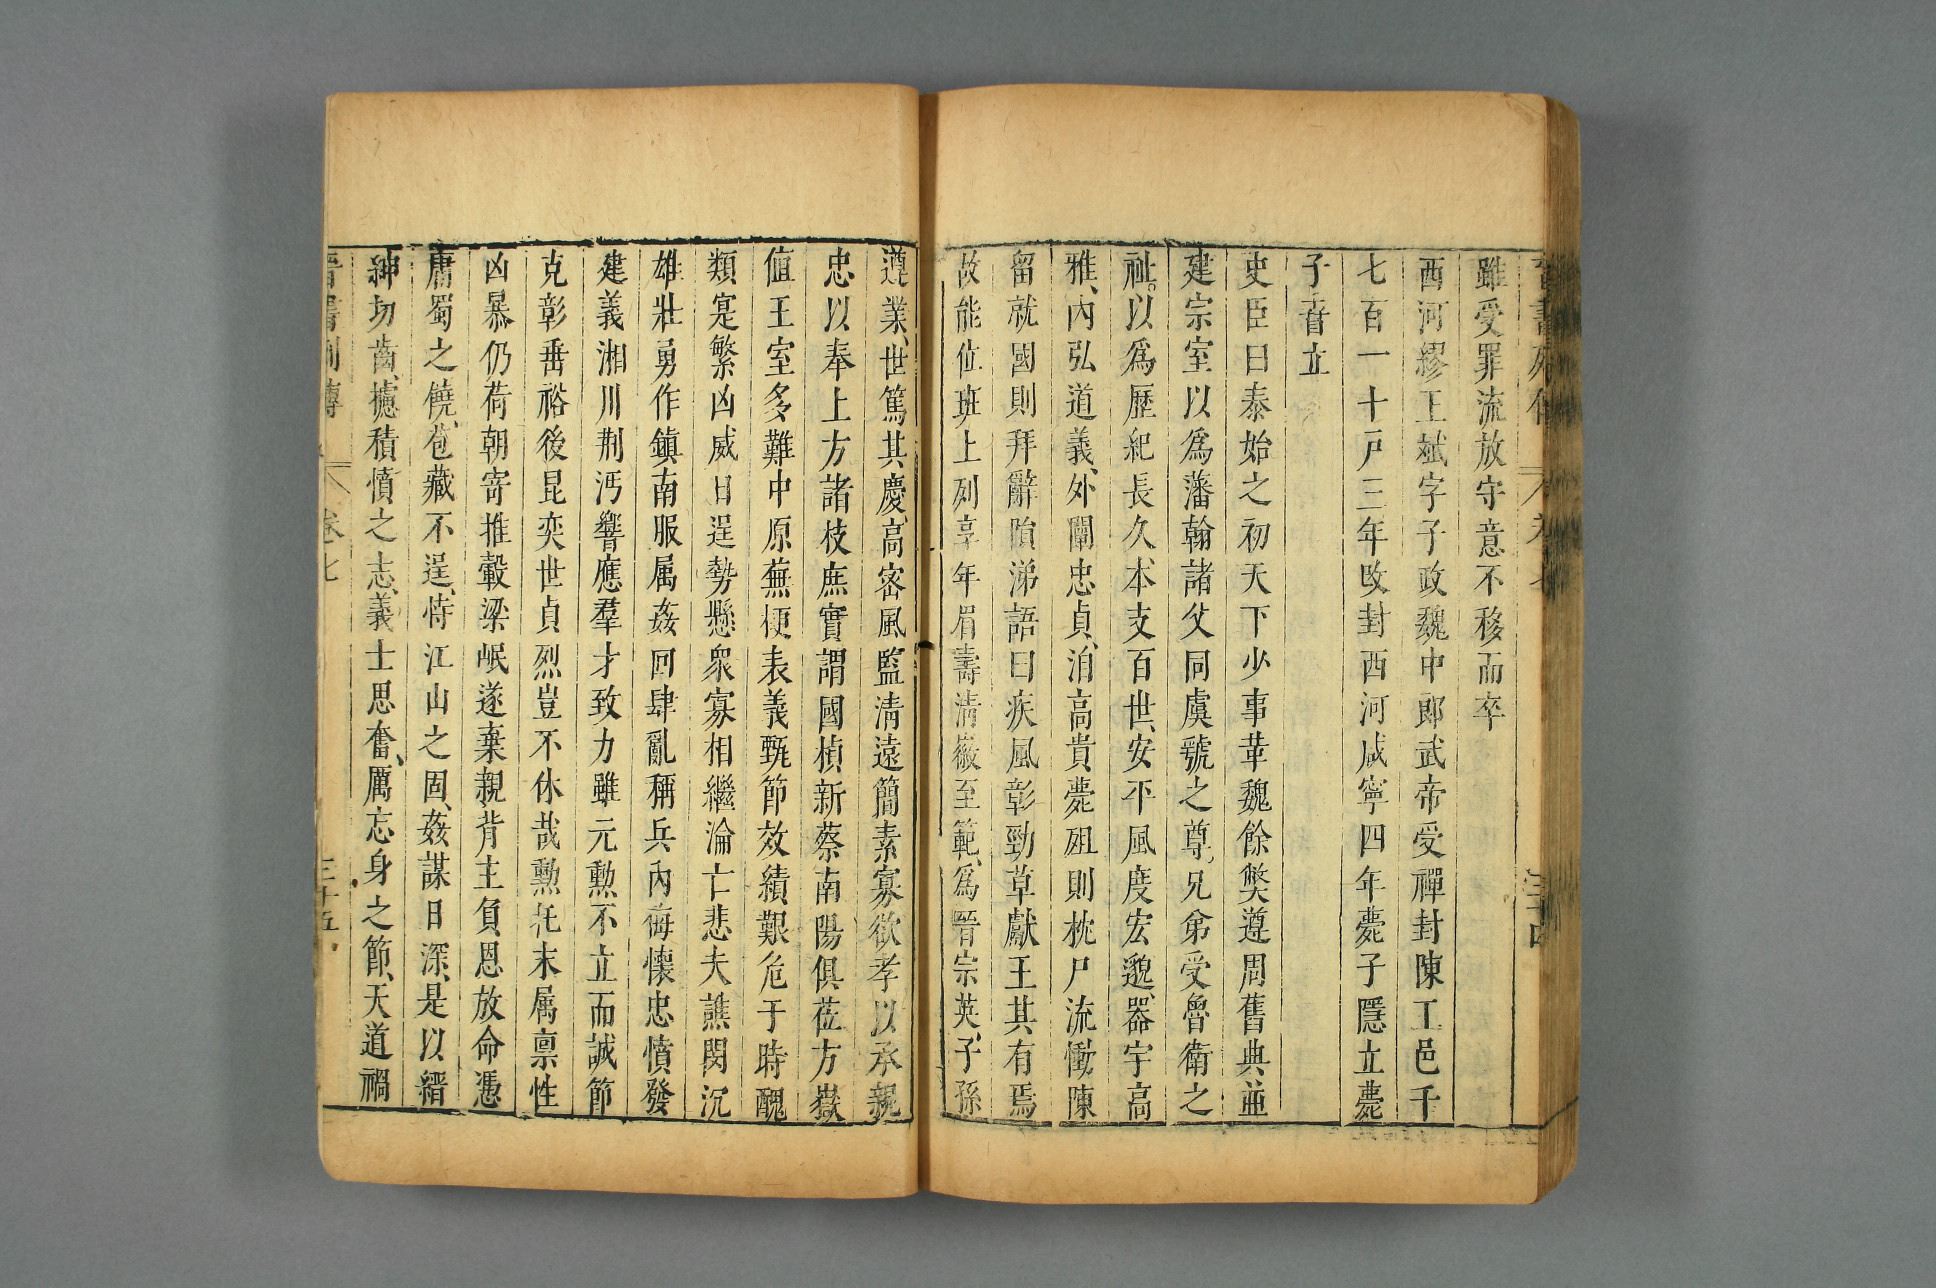 晉書列傳 卷七 三十四
雖受罪流放守意不移而卒
西河繆王斌字子政魏中郎武帝受禪封陳王邑千
七百一十戶三年改封西河咸寧四年薨子隱立薨
子㬱立
史臣曰泰始之初天下少事革魏餘獘遵周舊典並
建宗室以爲藩翰諸父同虞虢之尊兄弟受魯衛之
祉以爲歷紀長久本支百世安平風度宏邈器宇高
雅內弘道義外闡忠貞洎高貴薨殂則枕尸流慟陳
留就國則拜辭隕涕語曰疾風彰勁草獻王其有焉
故能位班上列享年眉壽清徽至範爲晉宗英子孫
遵業世篤其慶高密風監清遠簡素寡欲孝以承親
忠以奉上方諸枝庶實謂國楨新蔡南陽俱莅方嶽
值王室多難中原蕪梗表義甄節效績艱危于時醜
類寔繁凶威日逞勢懸衆寡相繼淪亡悲夫譙閔沉
雄壯勇作鎮南服属姦回肆亂稱兵內侮懷忠憤發
建義湘川荆沔響應羣才致力雖元勲不立而誠節
克彰垂裕後昆奕世貞烈豈不休哉勲托末属禀性
凶暴仍荷朝寄推轂梁岷遂棄親背主負恩放命憑
庸蜀之饒苞藏不逞恃江山之固姦謀日深是以縉
紳切齒攄積憤之志義士思奮厲忘身之節天道禍
晉書列傳 卷七 三十五